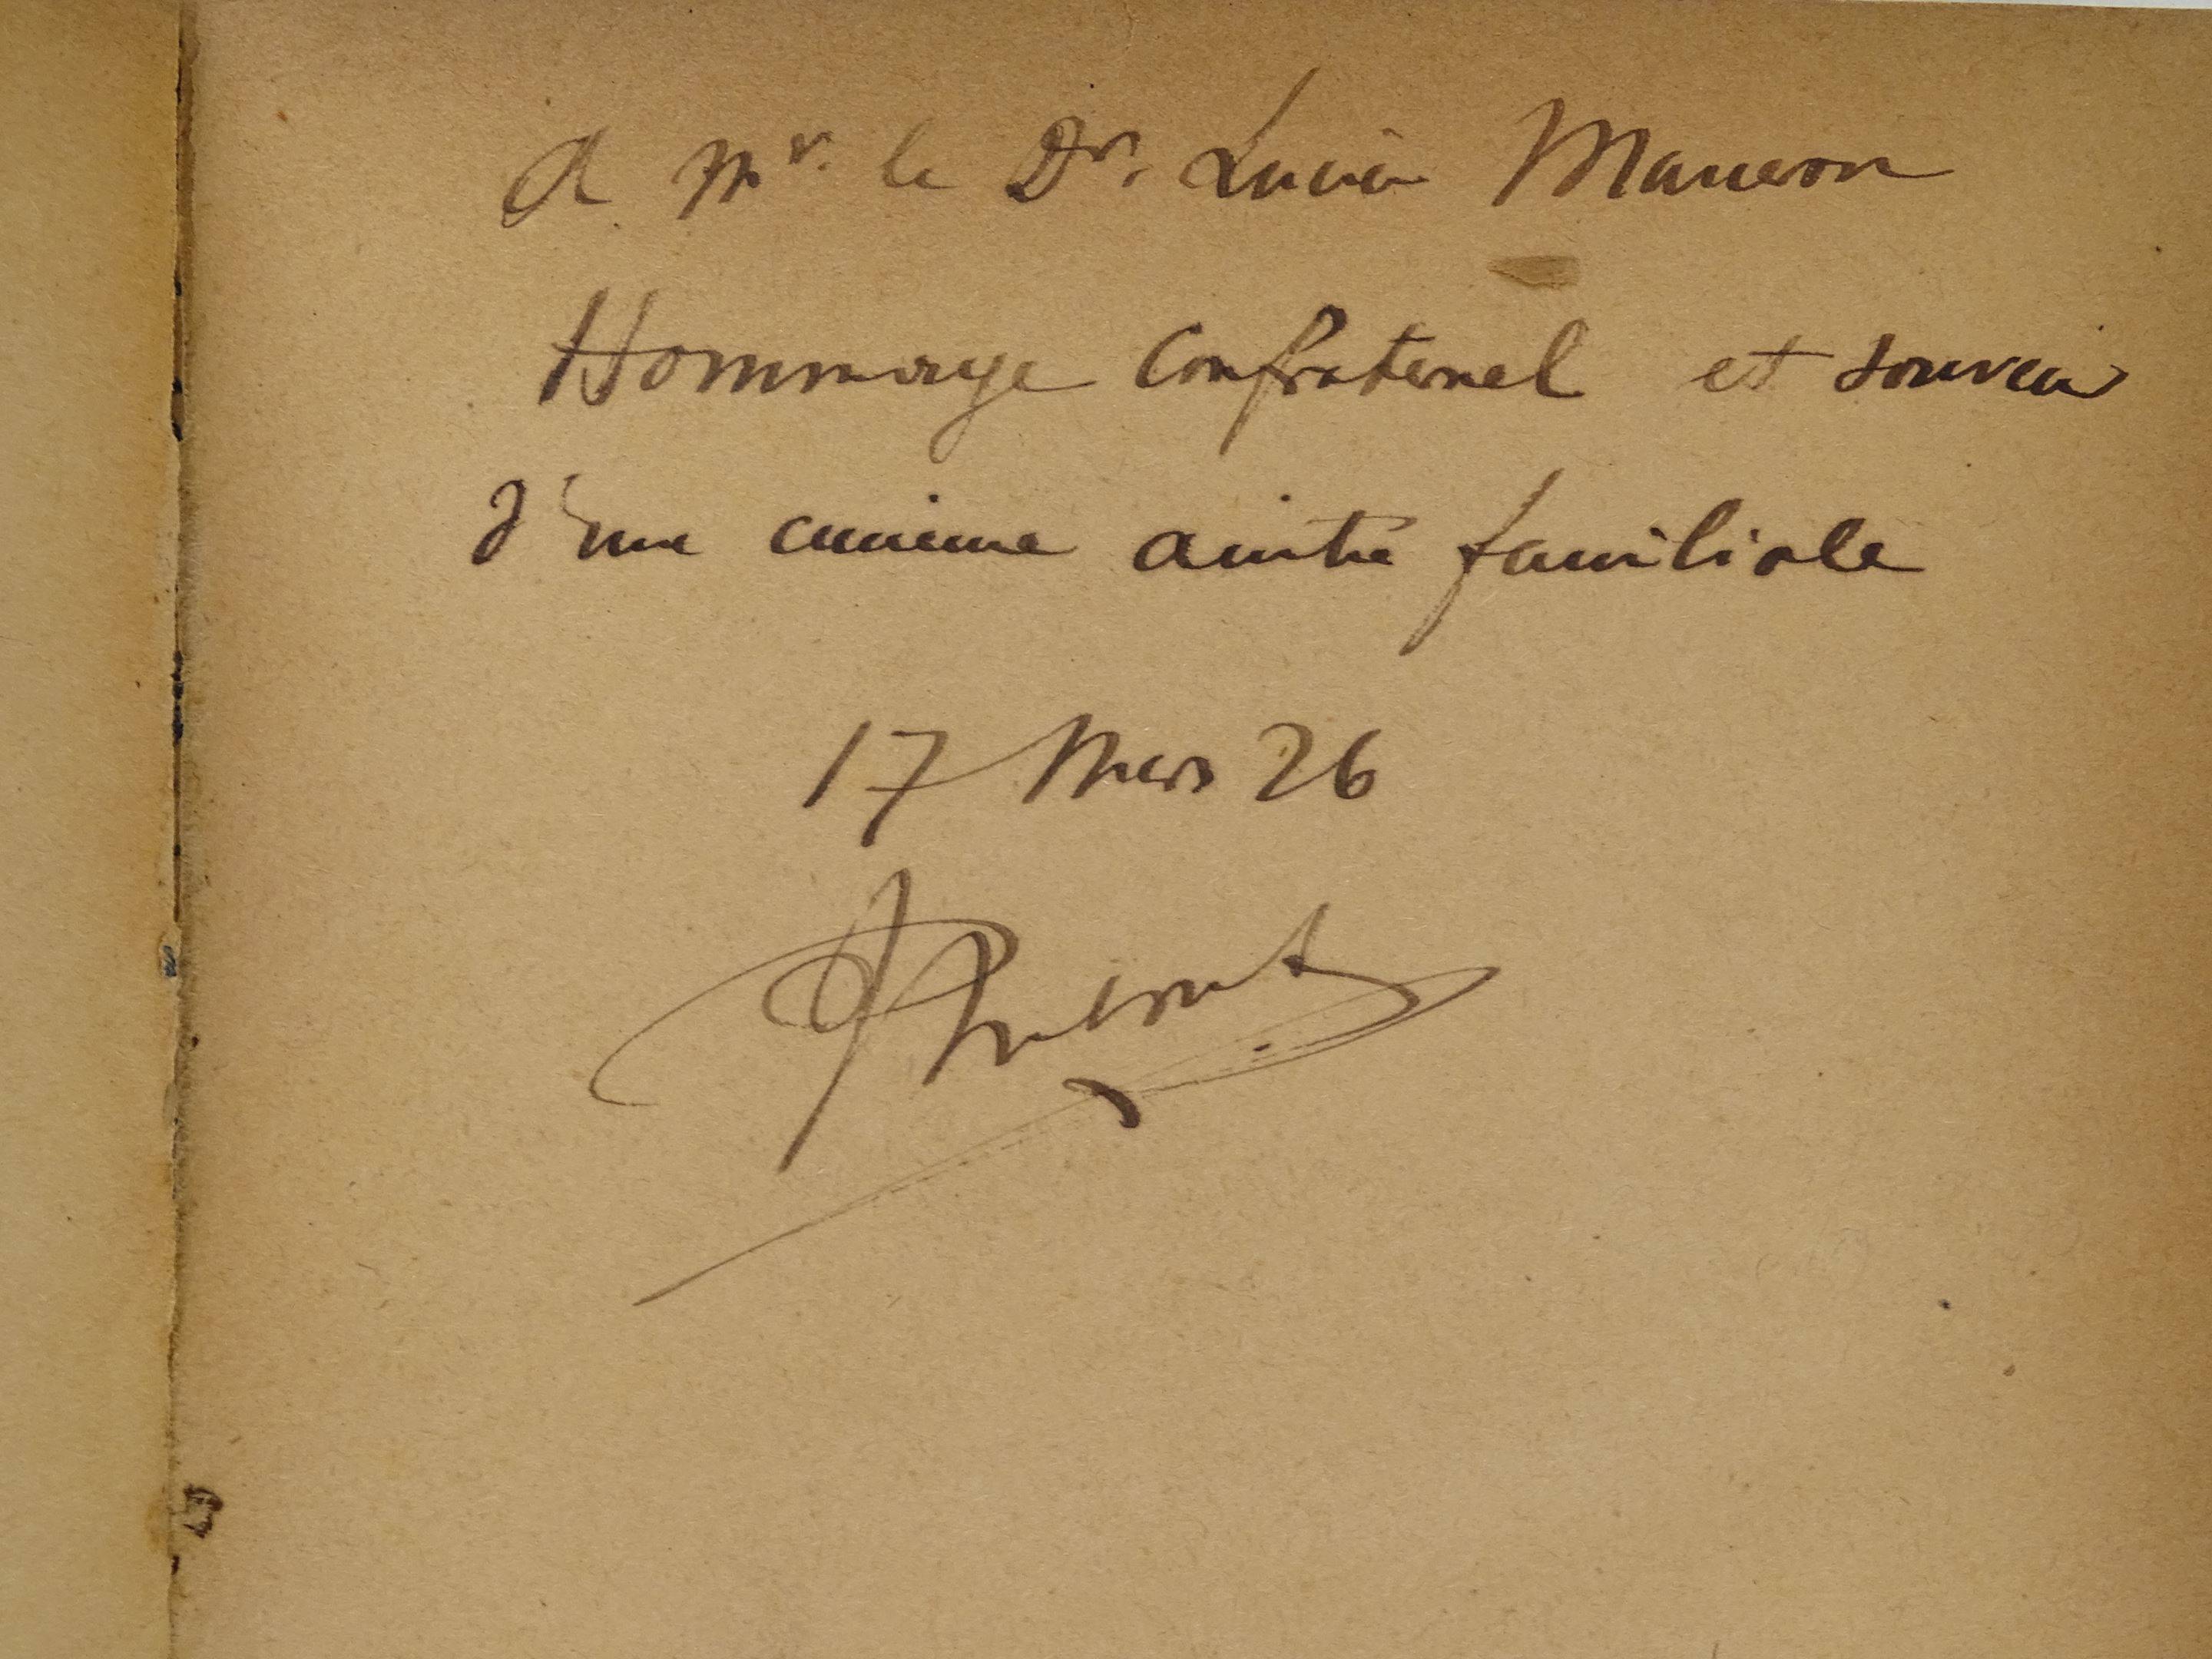 A Mr. le Dr. Lucien Mauveron
Hommage Confraternel et souvenir
d'une ancienne amitié familiale
17 Mars 26